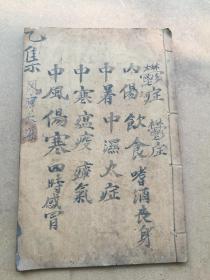 乙集
中風傷寒四時感冒
中寒瘟疫瘴氣
中暑中濕火症
內傷飲食嗜酒長身
症 鬱症